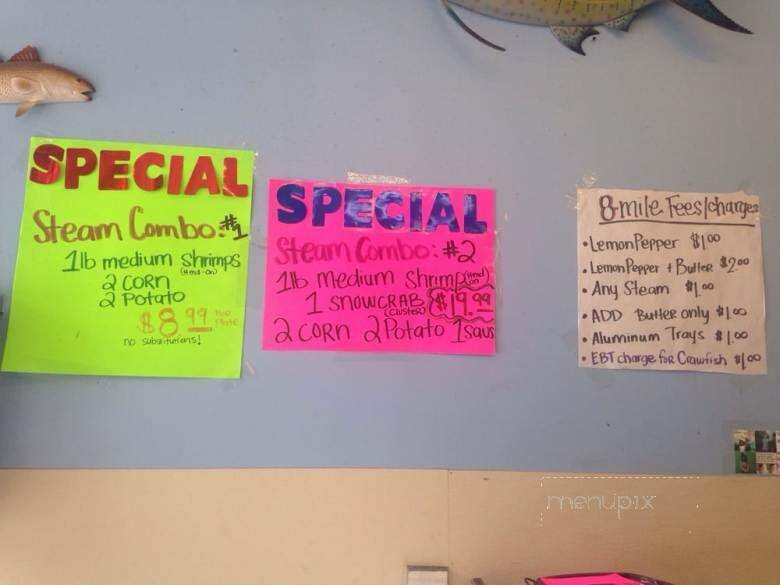 SPECIAL
Steam Combo: #1
1lb medium shrimps
(Head-on)
2 CORN
2 Potato
$8.99
no substitutions!
SPECIAL
Steam Combo: #2
1lb medium shrimp (Head on)
1 SNOWCRAB $19.99
(CLUSTER)
2 CORN 2 Potato 1 saus
8-mile Fees/charges
• Lemon Pepper $1.00
• Lemon Pepper + Butter $2.00
• Any Steam $1.00
• ADD Butter only $1.00
• Aluminum Trays $1.00
• EBT charge for Crawfish $1.00
menupix